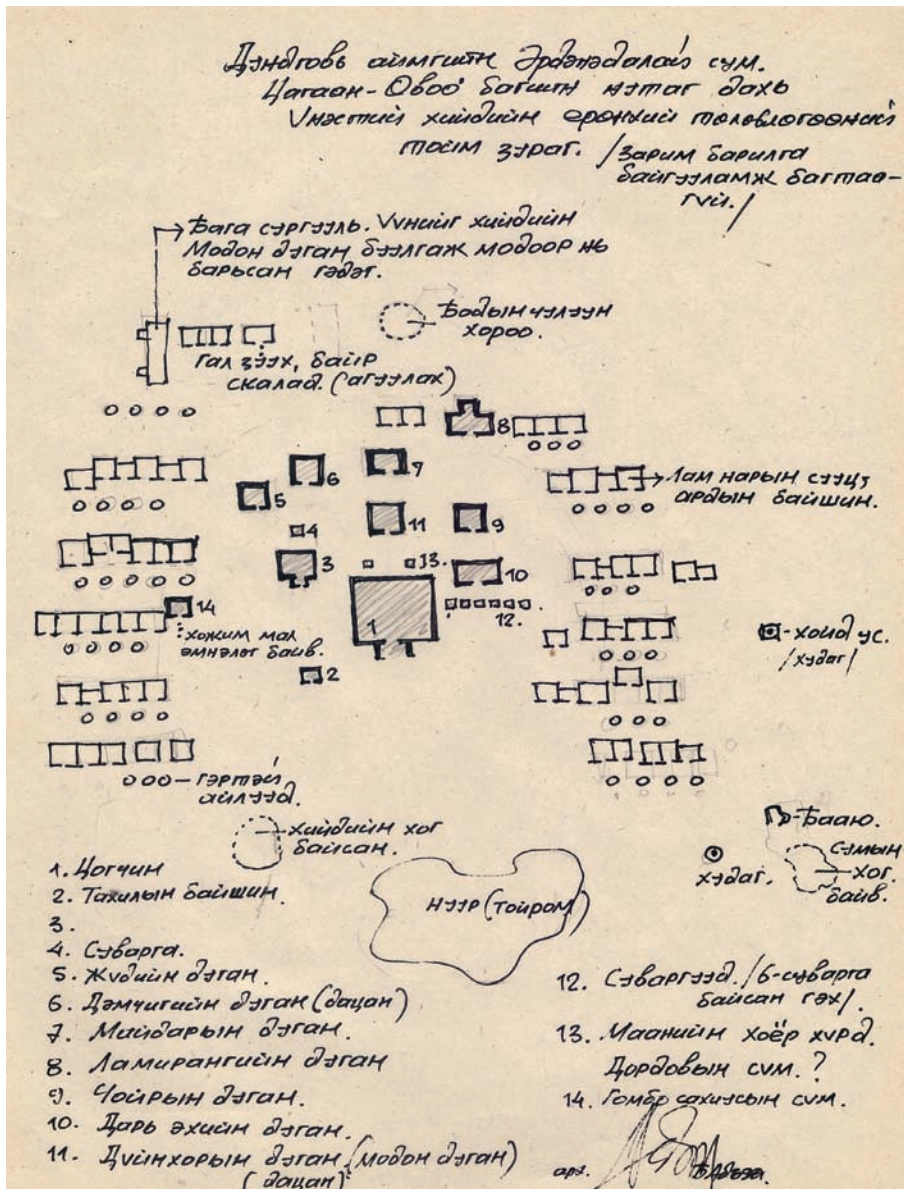 Дундговь аймгийн Эрдэнэдалай сум.
Цагаан-Овоо багийн нутаг дахь
Үнэстийн хийдийн ерөнхий төлөвлөгөөний
тойм зураг. /Зарим барилга
байгууламж багтаа-
гүй./
Бага сургууль. Үүнийг хийдийн
Модон дуган буулгаж модоор нь
барьсан гэдэг.
Бодын чулуун
хороо.
Гал зуух, байр
склад. (агуулах)
8
6
7
5
Лам нарын сууц,
ардын байшин.
4
11
9
3
13.
10
1
12.
14
хожим мал
эмнэлэг байв.
хойд ус.
/худаг/
2
гэртэй
айлууд.
Хийдийн хог
байсан.
Бааю.
Сумын
хог.
байв.
худаг.
Нуур (тойром)
1. Цогчин
2. Тахилын байшин.
3.
4. Суварга.
5. Жүдийн дуган.
6. Дэмчигийн дуган (дацан)
7. Майдарын дуган.
8. Ламирангийн дуган
9. Чойрын дуган.
10. Дарь эхийн дуган.
11. Дүйнхорын дуган (модон дуган)
(дацан)
12. Суваргууд. /6-суварга
байсан гэх/.
13. Маанийн хоёр хүрд.
Дордовын сүм. ?
14. Гомбо сахиусын сүм.
арх.